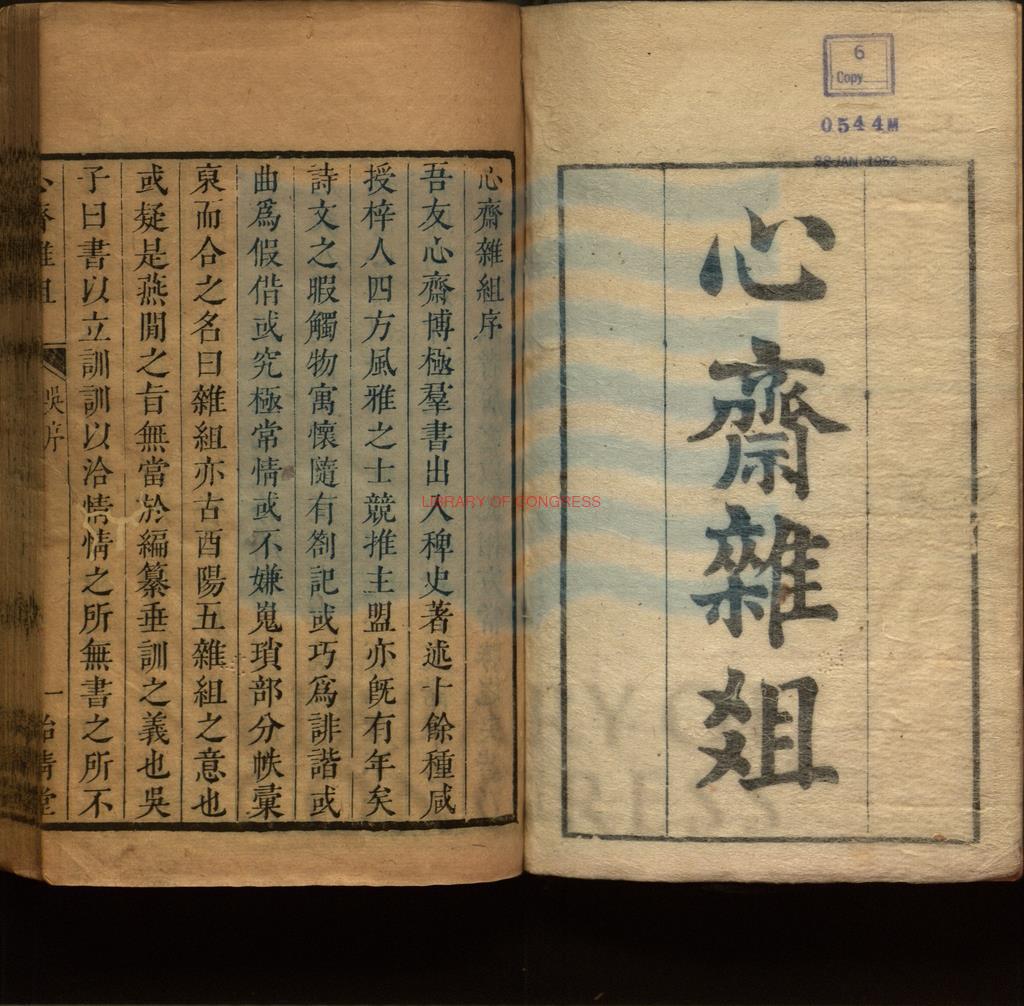 6
Copy
0544M
28 JAN 1952
心齋雜俎
LIBRARY OF CONGRESS
心齋雜組序
吾友心齋博極羣書出入稗史著述十餘種咸
授梓人四方風雅之士競推主盟亦旣有年矣
詩文之暇觸物寓懷隨有劄記或巧爲誹諧或
曲爲假借或究極常情或不嫌嵬瑣部分帙彙
裒而合之名曰雜組亦古酉陽五雜組之意也
或疑是燕閒之旨無當於編纂垂訓之義也吳
子曰書以立訓訓以洽情情之所無書之所不
心齋雜組
吳序
一
詒清堂